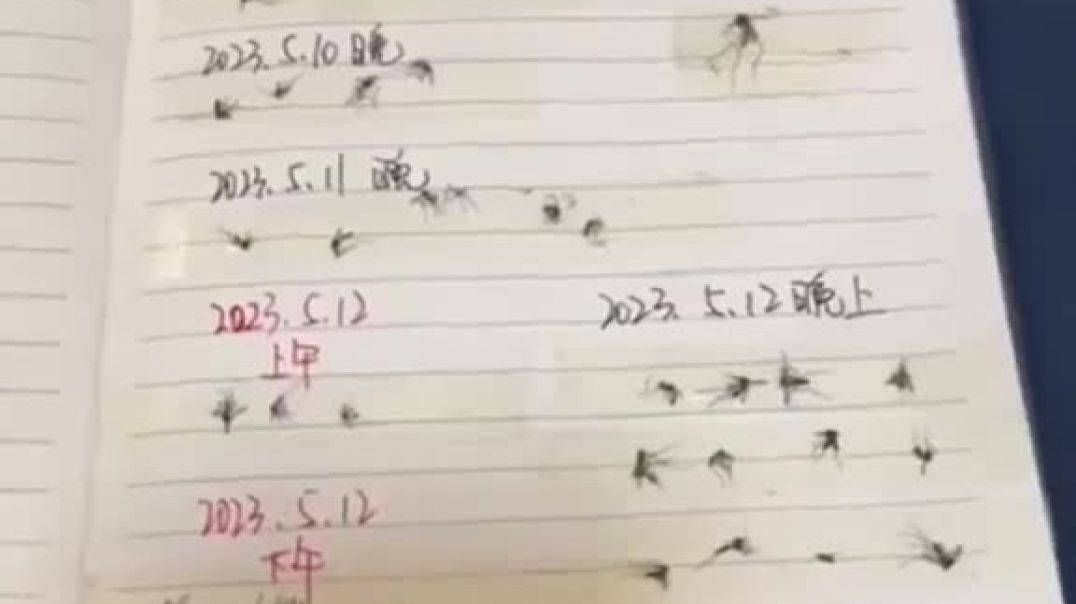 2023.5.10 晚
2023.5.11 晚
2023.5.12
上午
2023.5.12 晚上
2023.5.12
下午